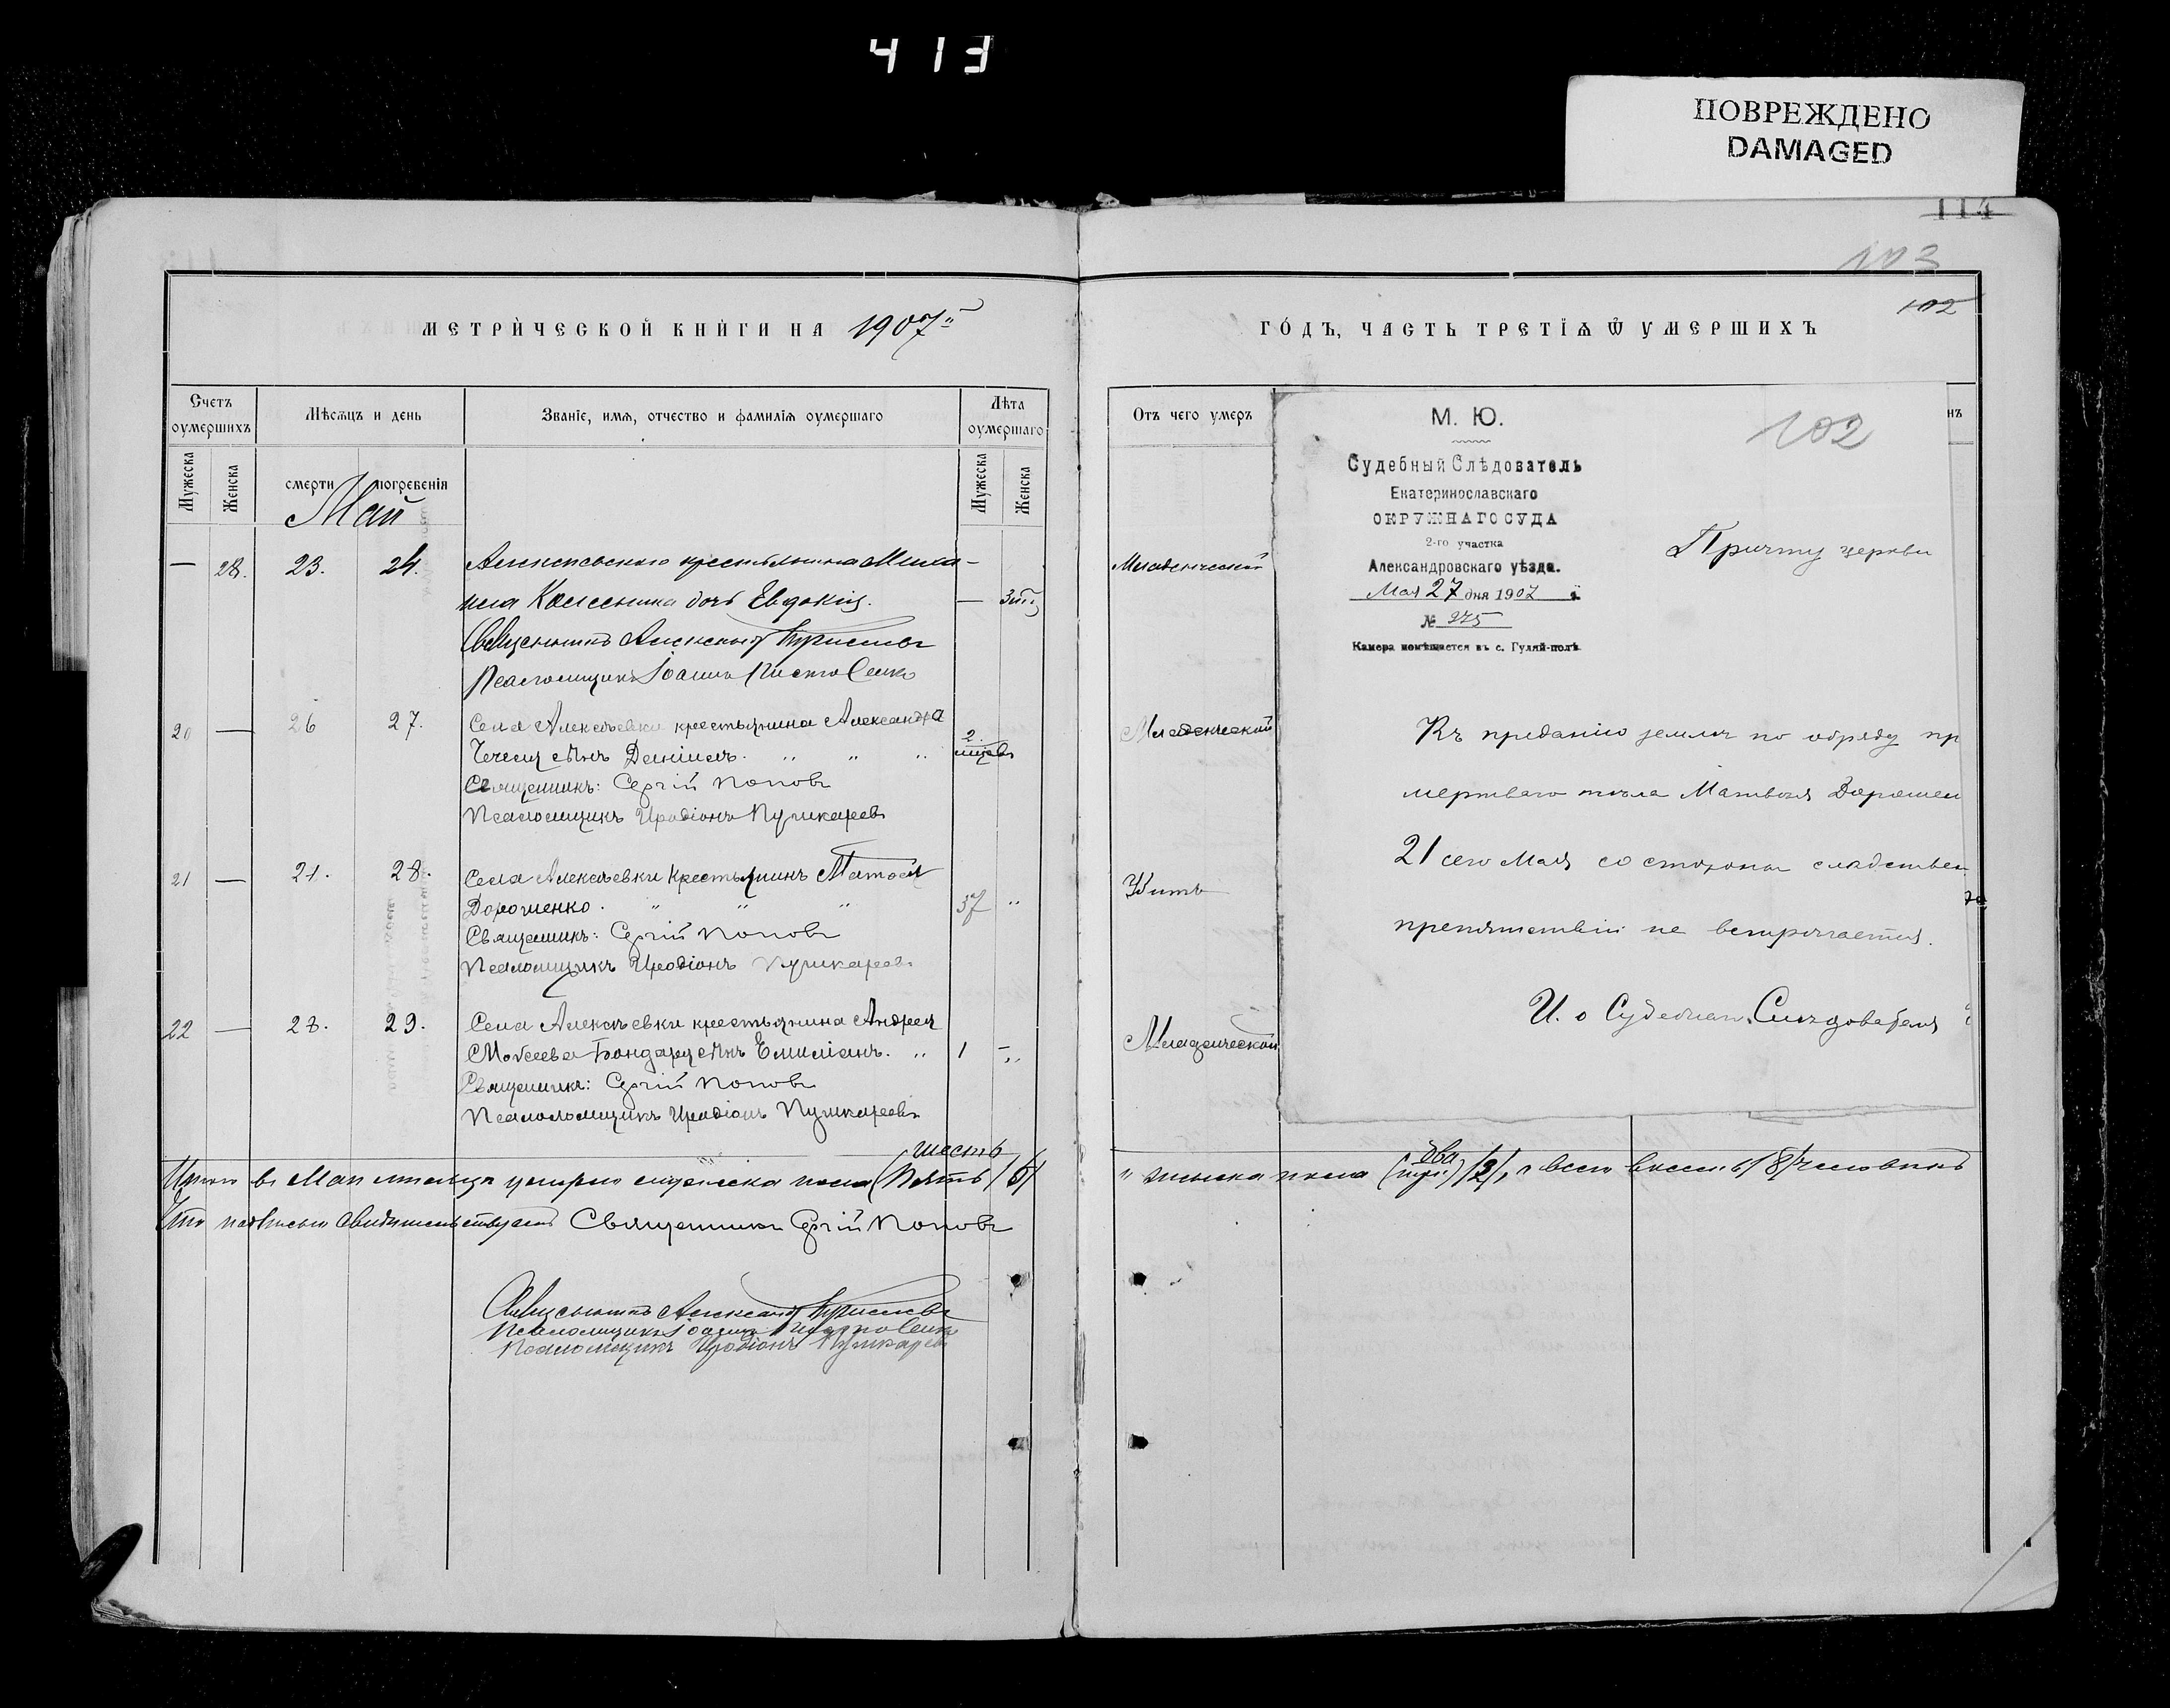 413
ПОВРЕЖДЕНО
DAMAGED
114
103
102
МЕТРИЧЕСКОЙ КНИГИ НА 1907й
ГОДЪ, ЧАСТЬ ТРЕТІѦ Ѿ УМЕРШИХЪ
Счетъ оумершихъ
Мѣсѧцъ и день
Званіе, имѧ, отчество и фамиліѧ оумершаго
Лѣта оумершаго
Отъ чего умеръ
Мужеска
Женска
смерти
погребенія
Мужеска
Женска
Май
— 28. 23. 24. Алексѣевского крестьянина Миха-
ила Колесника дочь Евдокія. —
Священникъ Александръ
Псаломщикъ Іоаннъ
Младенческой
20 — 26 27. Села Алексѣевки крестьянина Александра
сынъ Даніилъ. 2. мѣсяц
Священникъ: Сергій Поповъ
Псаломщикъ Иродіонъ Пушкаревъ
Младенческий
21 — 21. 28. Села Алексѣевки крестьянинъ Матөей
Дорошенко. 37
Священникъ: Сергій Поповъ
Псаломщикъ Иродіонъ Пушкаревъ
Убитъ
22 — 28. 29. Села Алексѣевки крестьянина Андрея
Моѵсеева Бондарь сынъ Емиліанъ. 1 —
Священникъ: Сергій Поповъ
Псаломщикъ Иродіонъ Пушкаревъ
Младенческой
шесть
Итого въ Маѣ мѣсяцѣ умерло мужеска пола (Пять) /6/
два
женска пола (три) /2/, а всего восемь /8/ человѣкъ
Что подписью свидѣтельствуемъ Священникъ Сергій Поповъ
Священникъ Александръ
Псаломщикъ Іоаннъ
Псаломщикъ Иродіонъ Пушкаревъ
М. Ю.
102
Судебный Слѣдователь
Екатеринославскаго
ОКРУЖНАГО СУДА
2-го участка
Александровскаго уѣзда.
Мая 27 дня 1907 г.
№ 275
Камера помѣщается въ с. Гуляй-полѣ
Причту церкви
Къ преданію землѣ по обряду пр
мертваго тѣла Матвѣя Дорошен
21 сего Мая со стороны слѣдствен
препятствій не встрѣчается.
И. о Судебнаго Слѣдователя